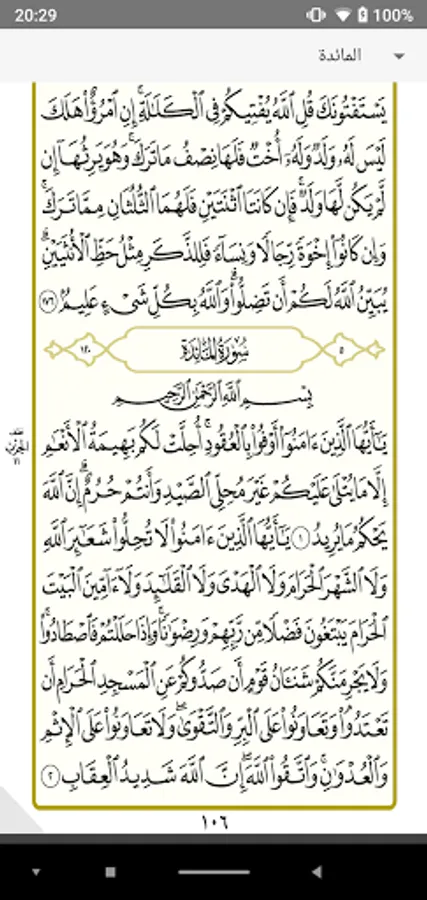 20:29
100%
المائدة
يَسْتَفْتُونَكَ قُلِ ٱللَّهُ يُفْتِيكُمْ فِى ٱلْكَلَٰلَةِ ۚ إِنِ ٱمْرُؤٌا۟ هَلَكَ
لَيْسَ لَهُۥ وَلَدٌ وَلَهُۥٓ أُخْتٌ فَلَهَا نِصْفُ مَا تَرَكَ ۚ وَهُوَ يَرِثُهَآ إِن
لَّمْ يَكُن لَّهَا وَلَدٌ ۚ فَإِن كَانَتَا ٱثْنَتَيْنِ فَلَهُمَا ٱلثُّلُثَانِ مِمَّا تَرَكَ ۚ
وَإِن كَانُوٓا۟ إِخْوَةً رِّجَالًا وَنِسَآءً فَلِلذَّكَرِ مِثْلُ حَظِّ ٱلْأُنثَيَيْنِ ۗ
يُبَيِّنُ ٱللَّهُ لَكُمْ أَن تَضِلُّوا۟ ۗ وَٱللَّهُ بِكُلِّ شَىْءٍ عَلِيمٌۢ ١٧٦
٥ سُورَةُ المَائِدَةِ ١٢٠
بِسْمِ ٱللَّهِ ٱلرَّحْمَٰنِ ٱلرَّحِيمِ
يَٰٓأَيُّهَا ٱلَّذِينَ ءَامَنُوٓا۟ أَوْفُوا۟ بِٱلْعُقُودِ ۚ أُحِلَّتْ لَكُم بَهِيمَةُ ٱلْأَنْعَٰمِ
نصف
الحزب
١١
إِلَّا مَا يُتْلَىٰ عَلَيْكُمْ غَيْرَ مُحِلِّى ٱلصَّيْدِ وَأَنتُمْ حُرُمٌ ۗ إِنَّ ٱللَّهَ
يَحْكُمُ مَا يُرِيدُ ١ يَٰٓأَيُّهَا ٱلَّذِينَ ءَامَنُوا۟ لَا تُحِلُّوا۟ شَعَٰٓئِرَ ٱللَّهِ
وَلَا ٱلشَّهْرَ ٱلْحَرَامَ وَلَا ٱلْهَدْىَ وَلَا ٱلْقَلَٰٓئِدَ وَلَآ ءَآمِّينَ ٱلْبَيْتَ
ٱلْحَرَامَ يَبْتَغُونَ فَضْلًا مِّن رَّبِّهِمْ وَرِضْوَٰنًا ۚ وَإِذَا حَلَلْتُمْ فَٱصْطَادُوا۟ ۚ
وَلَا يَجْرِمَنَّكُمْ شَنَـَٔانُ قَوْمٍ أَن صَدُّوكُمْ عَنِ ٱلْمَسْجِدِ ٱلْحَرَامِ أَن
تَعْتَدُوا۟ ۘ وَتَعَاوَنُوا۟ عَلَى ٱلْبِرِّ وَٱلتَّقْوَىٰ ۖ وَلَا تَعَاوَنُوا۟ عَلَى ٱلْإِثْمِ
وَٱلْعُدْوَٰنِ ۚ وَٱتَّقُوا۟ ٱللَّهَ ۖ إِنَّ ٱللَّهَ شَدِيدُ ٱلْعِقَابِ ٢
١٠٦